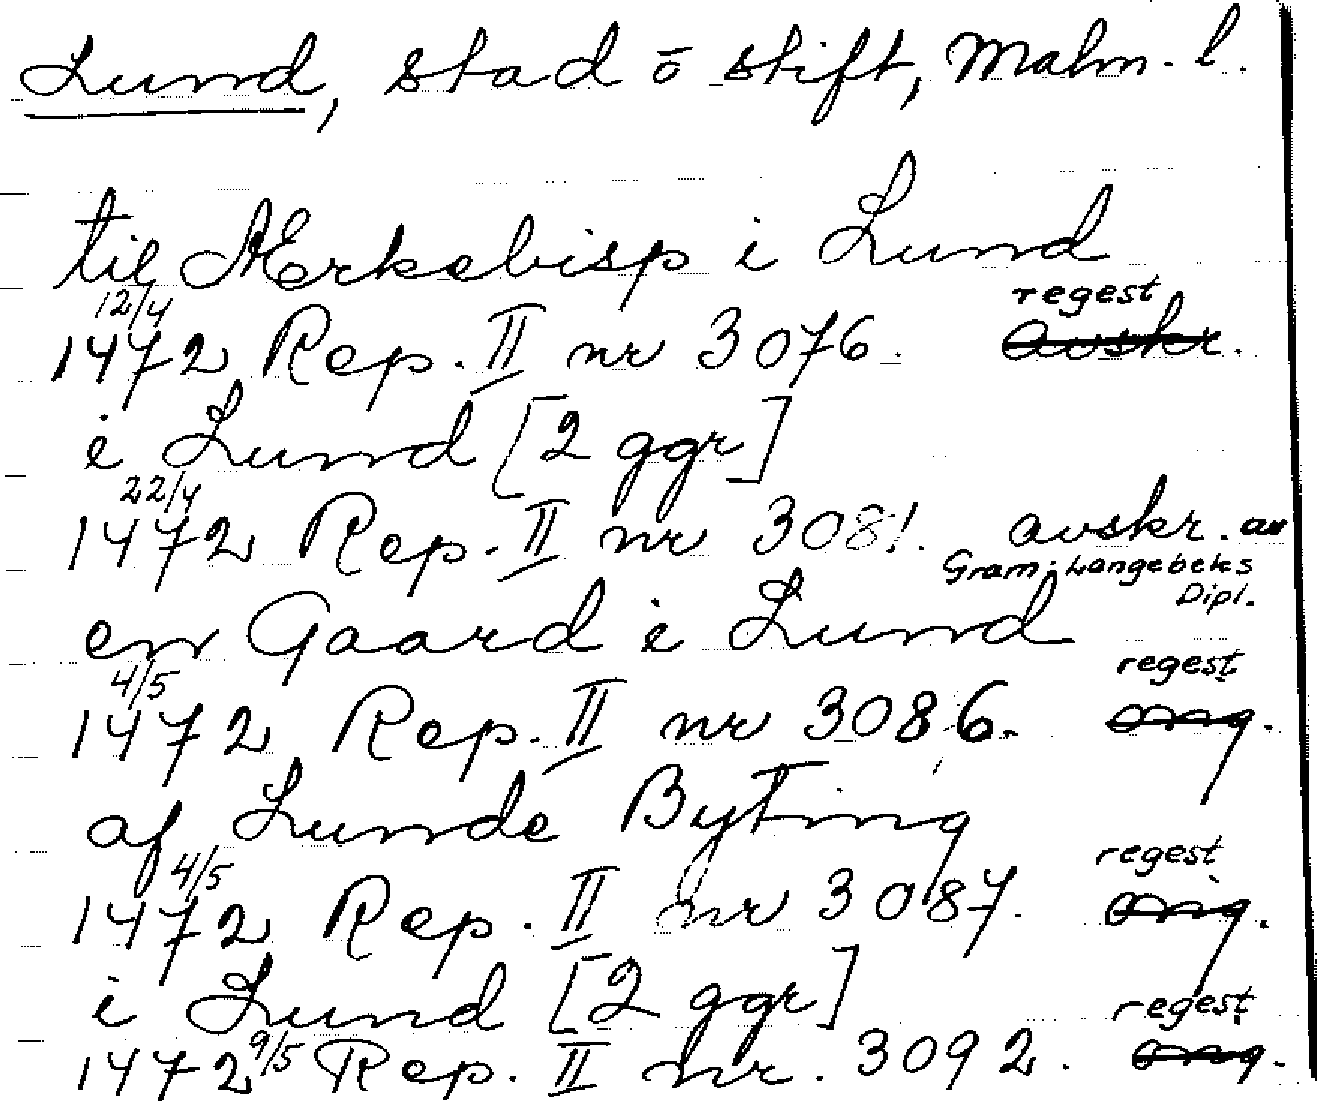 Lund, stad o stift, Malm. l.
til Ærkebisp i Lund
12/4 regest
1472 Rep. II nr 3076. avskr.
i Lund [2 ggr]
22/4
1472 Rep. II nr 3081. avskr. av
Gram: Langebeks
Dipl.
en Gaard i Lund
4/5 regest
1472 Rep. II nr 3086. orig.
af Lunde Byting
4/5 regest
1472 Rep. II nr 3087. orig.
i Lund [2 ggr]
regest
1472 9/5 Rep. II nr. 3092. orig.